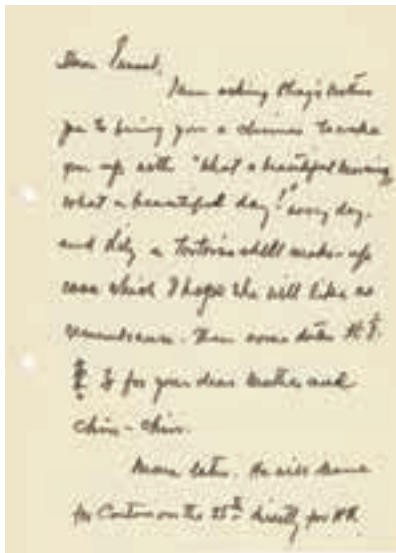 Dear Ernest,
I am asking
you to bring you a chimes to wake
you up with "What a beautiful morning
what a beautiful day!" every day.
and Lily a tortoise shell make-up
case which I hope she will like as
remembrance. Then some dates
for your dear mother and
chin-chin.
More later. He will leave
for Canton on the 25th directly for HK